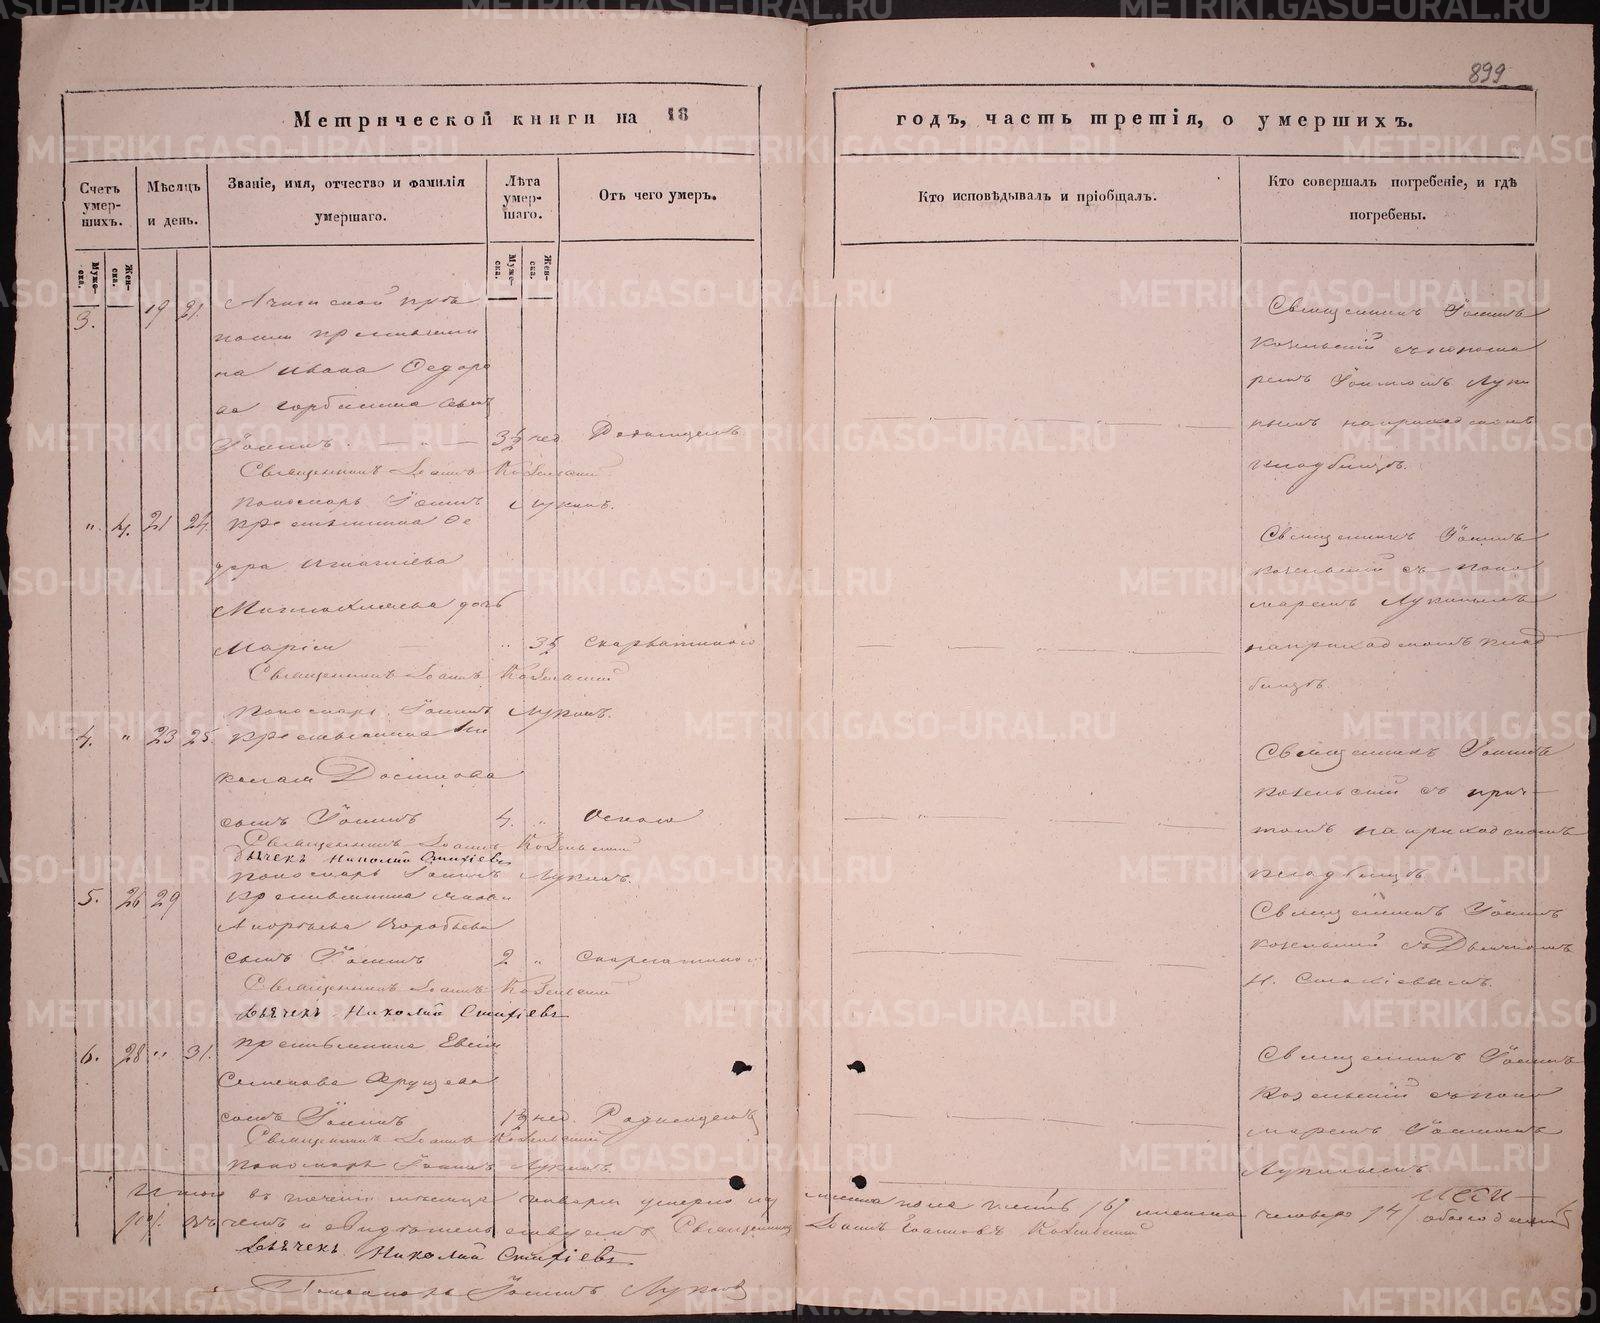 899
Метрической книги на 18
годъ, часть третія, о умершихъ.
Счетъ умер-шихъ.
Мѣсяцъ и день.
Званіе, имя, отчество и фамилія умершаго.
Лѣта умер-шаго.
Отъ чего умеръ.
Кто исповѣдывалъ и пріобщалъ.
Кто совершалъ погребеніе, и гдѣ погребены.
Муже-ска.
Жен-ска.
Муже-ска.
Жен-ска.
3. 19 21.
на Ивана Федоро
ва Горбунова сынъ
Іоаннъ 3½ нед Родимцемъ
Священникъ Іоаннъ Козельский
Пономарь Іоаннъ Лукинъ.
Священникъ Іоаннъ
Козельский с понома
ремъ Іоанномъ Луки
нымъ на приходскомъ
кладбищѣ.
" 4. 21 24. Крестьянина Фе
дора Игнатіева
дочь
Марія " 3½ Скарлатиною
Священникъ Іоаннъ Козельский
Пономарь Іоаннъ Лукинъ.
Священникъ Іоаннъ
Козельский съ поно
маремъ Лукинымъ
на приходскомъ клад
бищѣ.
4. " 23 25. Крестьянина Ни
колая
сынъ Іоаннъ 4. " Оспою
Священникъ Іоаннъ Козельский
Дьячекъ Николай Стахіевъ
Пономарь Іоаннъ Лукинъ.
Священникъ Іоаннъ
Козельский съ прич-
томъ на приходскомъ
кладбищѣ
5. 26 29 Крестьянина
Воробьева
сынъ Іоаннъ 2 " Скарлатиною
Священникъ Іоаннъ Козельский
Дьячекъ Николай Стахіевъ
Священникъ Іоаннъ
Козельский съ Дьячкомъ
Н. Стахіевымъ.
6. 28 " 31. Крестьянина Евсея
Семенова Хрущева
сынъ Іоаннъ 1½ нед. Родимцемъ
Священникъ Іоаннъ Козельский
Пономарь Іоаннъ Лукинъ.
Священникъ Іоаннъ
Козельский с поно
маремъ Іоанномъ
Лукинымъ.
Итого въ теченіи месяца Января умерло мужеска пола шесть /6/ женска четыре /4/ обоего десять
/10/. Въ чемъ и свидѣтельствуемъ Священникъ Іоаннъ Іоанновъ Козельский
Дьячекъ Николай Стахіевъ
Пономарь Іоаннъ Лукинъ
METRIKI.GASO-URAL.RU